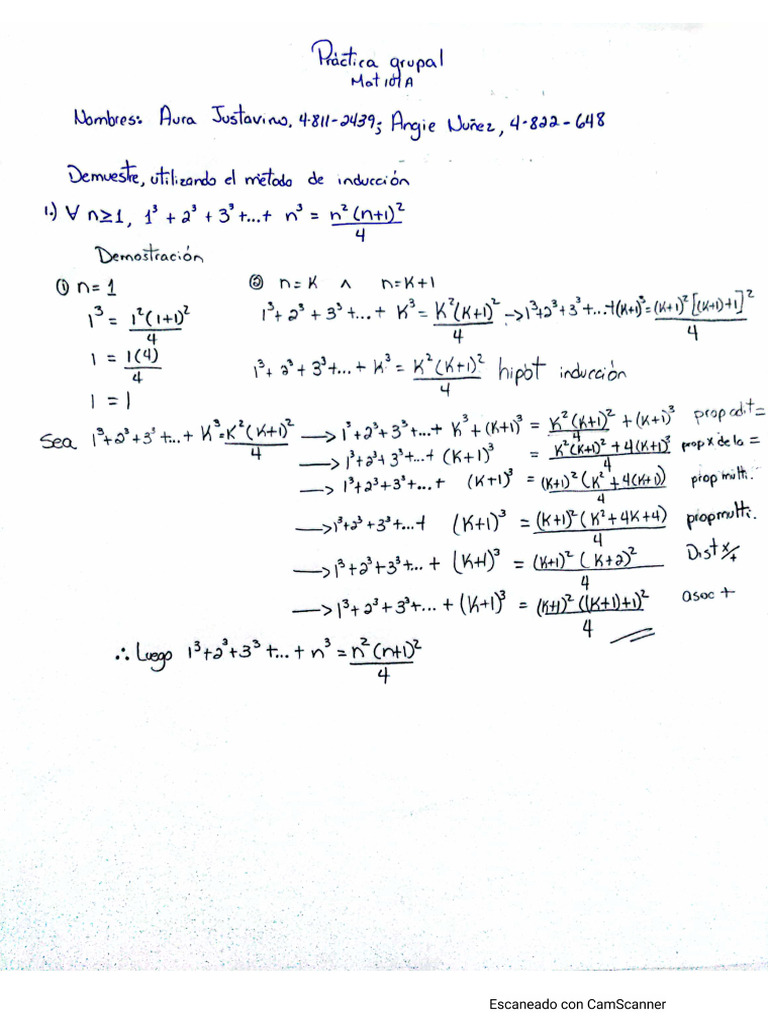 Práctica grupal
Mat 101A
Nombres: Aura Justavino, 4-811-2439; Angie Nuñez, 4-822-648
Demuestre, utilizando el método de inducción
1.) ∀ n≥1, 1³ + 2³ + 3³ +...+ n³ = n²(n+1)²/4
Demostración
① n=1
1³ = 1²(1+1)²/4
1 = 1(4)/4
1 = 1
② n=K ∧ n=K+1
1³+2³+3³+...+ K³ = K²(K+1)²/4 → 1³+2³+3³+...+(K+1)³ = (K+1)²[(K+1)+1]²/4
1³+2³+3³+...+K³ = K²(K+1)²/4 hipót inducción
Sea 1³+2³+3³+...+ K³ = K²(K+1)²/4 → 1³+2³+3³+...+ K³+(K+1)³ = K²(K+1)²/4 + (K+1)³ prop adit =
→ 1³+2³+3³+...+ (K+1)³ = K²(K+1)² + 4(K+1)³/4 prop x de la =
→ 1³+2³+3³+...+ (K+1)³ = (K+1)²(K²+4(K+1))/4 prop multi.
→ 1³+2³+3³+...+ (K+1)³ = (K+1)²(K²+4K+4)/4 prop multi.
→ 1³+2³+3³+...+ (K+1)³ = (K+1)²(K+2)²/4 Dist x/+
→ 1³+2³+3³+...+ (K+1)³ = (K+1)²((K+1)+1)²/4 asoc +
∴ Luego 1³+2³+3³+...+ n³ = n²(n+1)²/4
Escaneado con CamScanner